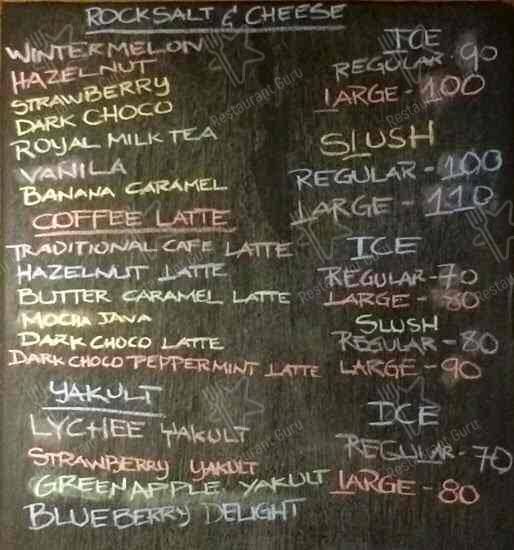 ROCKSALT & CHEESE
WINTERMELON
HAZELNUT
STRAWBERRY
DARK CHOCO
ROYAL MILK TEA
VANILA
BANANA CARAMEL
ICE
REGULAR - 90
LARGE - 100
SLUSH
REGULAR - 100
LARGE - 110
COFFEE LATTE
TRADITIONAL CAFE LATTE
HAZELNUT LATTE
BUTTER CARAMEL LATTE
MOCHA JAVA
DARK CHOCO LATTE
DARK CHOCO PEPPERMINT LATTE
ICE
REGULAR - 70
LARGE - 80
SLUSH
REGULAR - 80
LARGE - 90
YAKULT
LYCHEE YAKULT
STRAWBERRY YAKULT
GREENAPPLE YAKULT
BLUEBERRY DELIGHT
ICE
REGULAR - 70
LARGE - 80
Restaurant Guru
Restaurant Guru
Restaurant Guru
Restaurant Guru
Restaurant Guru
Restaurant Guru